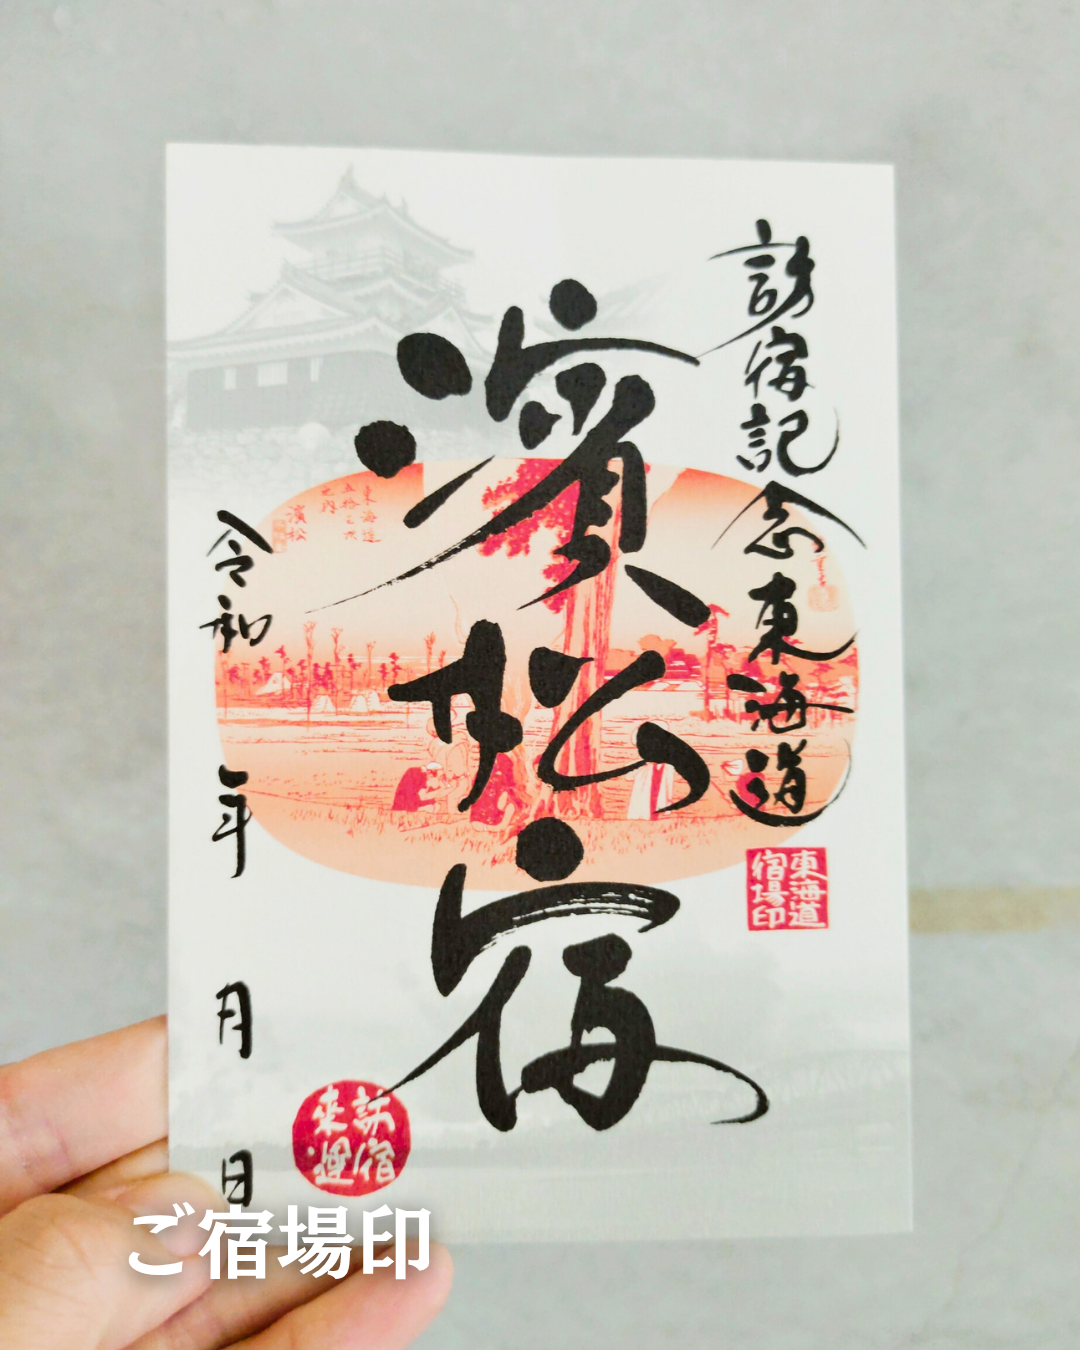 訪宿記念東海道
東海道
宿場印
濱松宿
東海道
五拾三次
之内
濱松
令和 年 月 日
訪宿
来運
ご宿場印